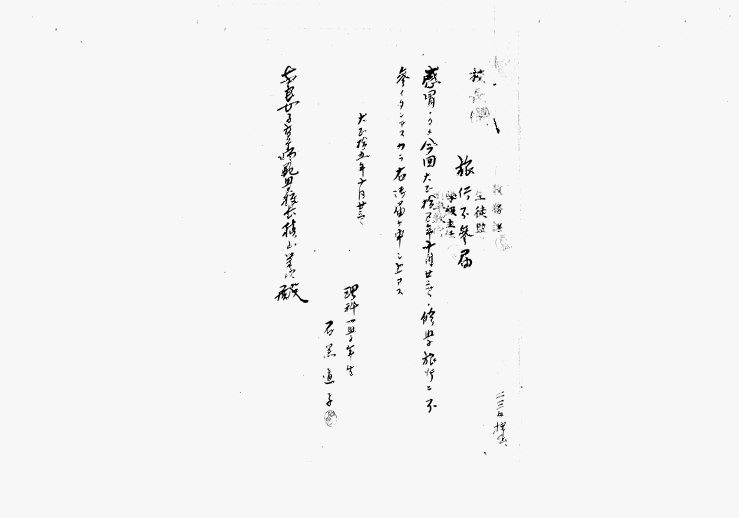 校長
教務課
生徒監
旅行不参届
感冒ノタメ今回大正拾五年十月廿三日ノ修学旅行ニ不
参イタシマスカラ右御届ケ申シ上マス
大正拾五年十月廿三日
理科一学年生
石黒直子
奈良女子高等師範学校長槙山栄次殿